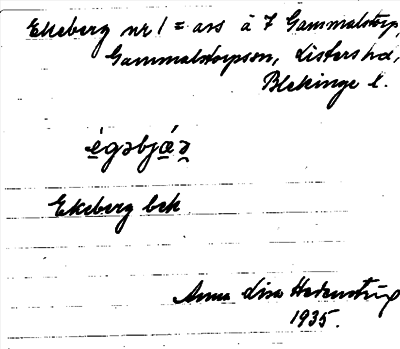 Ekeberg nr 1 = ars å 7 Gammalstorp,
Gammalstorpson, Listers hd,
Blekinge l.
égəbjæ̀ɔ
Ekeberg bek
Anna Lisa Hedenstug
1935.